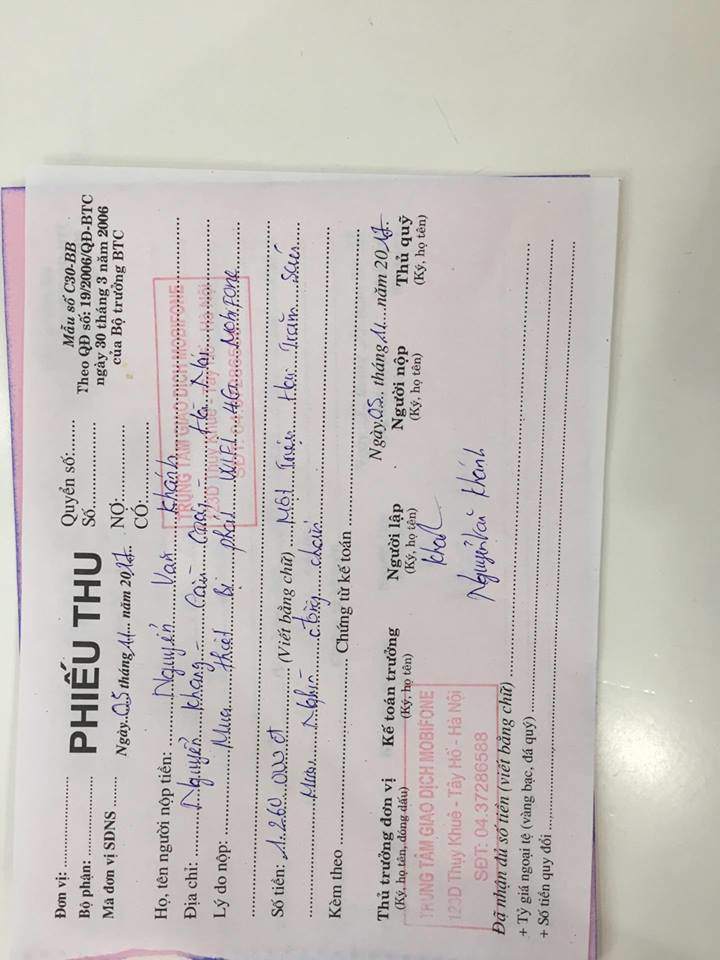 Đơn vị:
Bộ phận:
Mã đơn vị SDNS
PHIẾU THU
Ngày 05 tháng 11 năm 2017
Quyển số:
Số
NỢ:
CÓ:
Mẫu số C30-BB
Theo QĐ số: 19/2006/QĐ-BTC
ngày 30 tháng 3 năm 2006
của Bộ trưởng BTC
Họ, tên người nộp tiền: Nguyễn Văn Khánh
Địa chỉ: Nguyễn Khang - Cầu Giấy - Hà Nội
Lý do nộp: Mua thiết bị phát WIFI 4G Mobifone
TRUNG TÂM GIAO DỊCH MOBIFONE
123D Thụy Khuê - Tây Hồ - Hà Nội
SĐT: 04.37286588
Số tiền: 1.260.000 đ (Viết bằng chữ) Một Triệu Hai Trăm Sáu
Mươi Nghìn đồng chẵn
Kèm theo Chứng từ kế toán
Ngày 05 tháng 11 năm 2017
Thủ trưởng đơn vị Kế toán trưởng Người lập Người nộp Thủ quỹ
(Ký, họ tên, đóng dấu) (Ký, họ tên) (Ký, họ tên) (Ký, họ tên) (Ký, họ tên)
TRUNG TÂM GIAO DỊCH MOBIFONE
123D Thụy Khuê - Tây Hồ - Hà Nội
SĐT: 04.37286588
Nguyễn Văn Khánh
Đã nhận đủ số tiền (viết bằng chữ)
+ Tỷ giá ngoại tệ (vàng bạc, đá quý)
+ Số tiền quy đổi